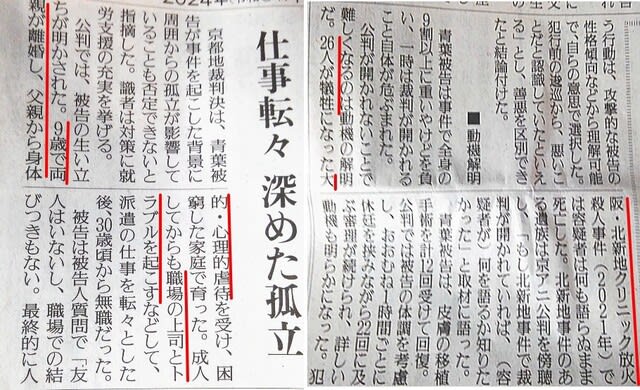 2024年
仕事転々 深めた孤立
京都地裁判決は、青葉被
告が事件を起こした背景に
周囲からの孤立が影響して
いることも否定できないと
指摘した。識者は対策に就
労支援の充実を挙げる。
公判では、被告の生い立
ちが明かされた。9歳で両
親が離婚し、父親から身体
的・心理的虐待を受け、困
窮した家庭で育った。成人
してからも職場の上司とト
ラブルを起こすなどして、
派遣の仕事を転々とした
後、30歳頃から無職だった。
被告は被告人質問で「友
人はいないし、職場での結
びつきもない。最終的に人
う行動は、攻撃的な被告の
性格傾向などから理解可能
で自らの意思で選択した。
犯行前の逡巡から、悪いこ
とだと認識していたといえ
る」とし、善悪を区別でき
たと結論付けた。
■動機解明
青葉被告は事件で全身の
9割以上に重いやけどを負
い、一時は裁判が開かれる
こと自体が危ぶまれた。
公判が開かれないことで
難しくなるのは動機の解明
だ。26人が犠牲になった大
阪・北新地クリニック放火
殺人事件（2021年）で
は容疑者は何も語らぬまま
死亡した。北新地事件のあ
る遺族は京アニ公判を傍聴
し、「もし北新地事件で裁
判が開かれていれば、（容
疑者が）何を語るか知りた
かった」と取材に語った。
青葉被告は、皮膚の移植
手術を計12回受けて回復。
公判では被告の体調を考慮
し、おおむね1時間ごとに
休廷を挟みながら22回に及
ぶ審理が続けられ、詳しい
動機も明らかになった。犯